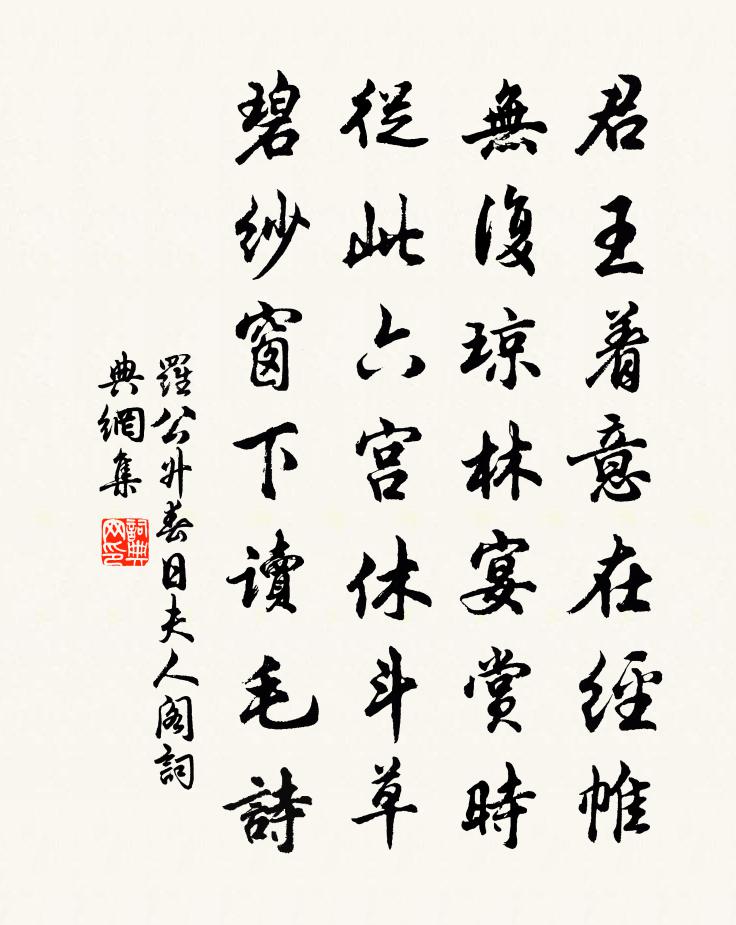 君王着意在經帷
無復琼林宴賞時
從此六宮休斗草
碧紗窗下讀毛詩
羅公升春日夫人阁詞
典網集
詞典
网印